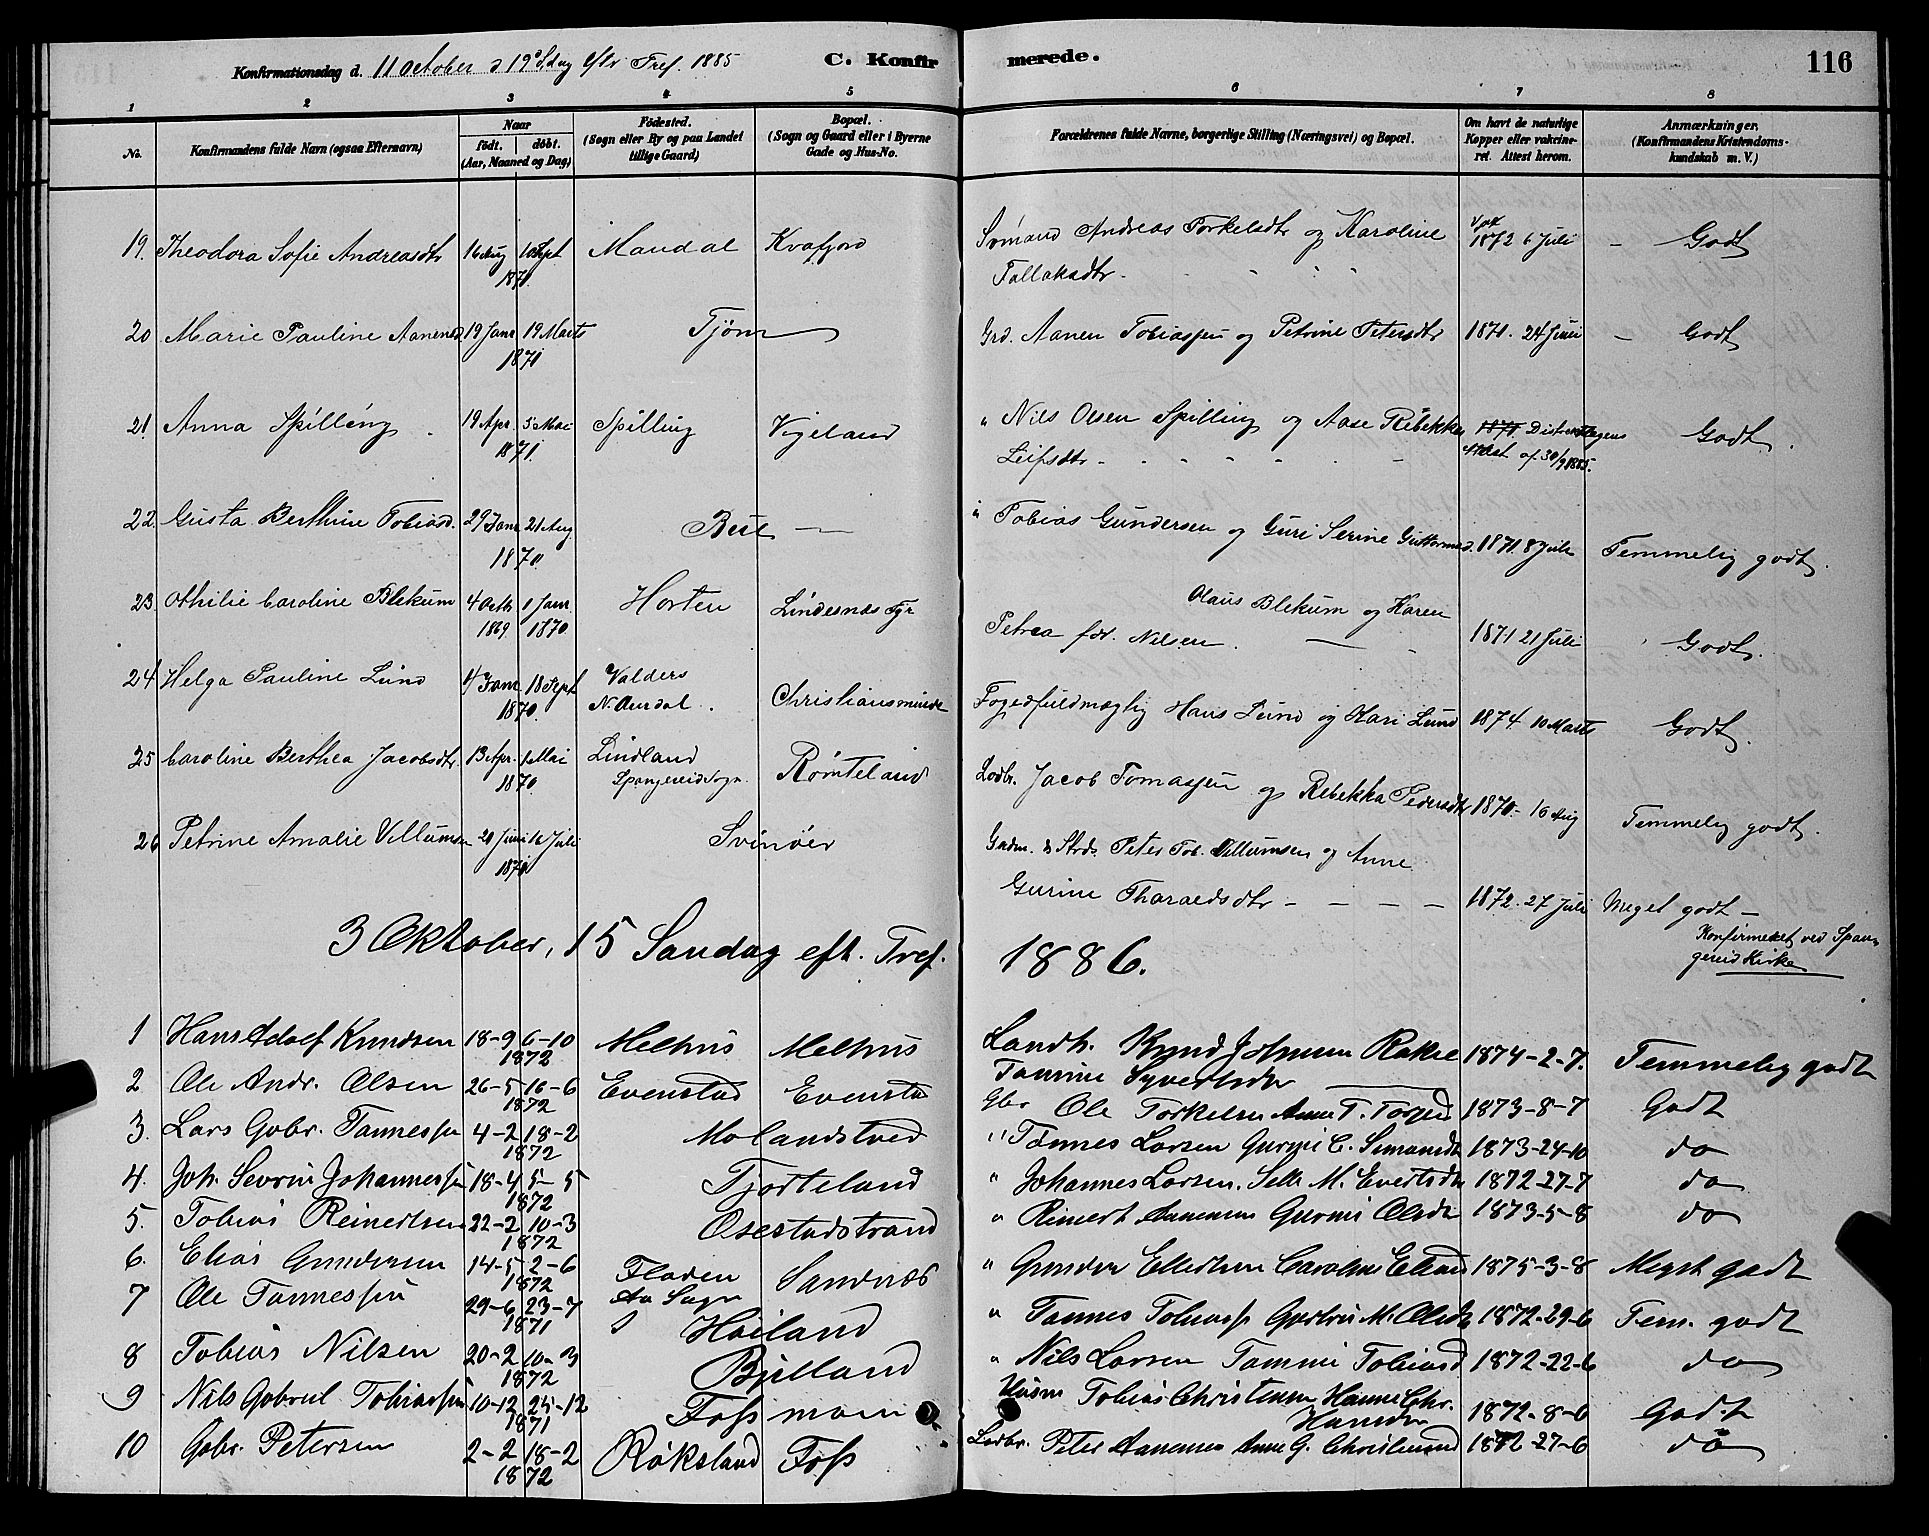 Konfirmationsdag d. 11 October 19 Sdag efter Tref. 1885 C. Konfirmerede. 116
1 2 3 4 5 6 7 8
No. Konfirmandens fulde Navn (ogsaa Efternavn) Naar født. døbt. (Aar, Maaned og Dag) Fødested. (Sogn eller By og paa Landet tillige Gaard) Bopæl. (Sogn og Gaard eller i Byerne Gade og Hus-No. Forældrenes fulde Navne, borgerlige Stilling (Næringsvei) og Bopæl. Om havt de naturlige Kopper eller vakcineret. Attest herom. Anmærkninger. (Konfirmandens Kristendomskundskab m. V.)
19. Theodora Sofie Andreasdtr 16 Aug Sept Mandal Kvafjord Sømand Andreas Torkeldtr og Karoline 1872 6 Juli - Godt
1870 Tallaksdtr.
20 Marie Pauline Aanensd 19 Janr 19 Marts Tjøm Grd. Aanen Tobiassen og Petrine Petersdtr 1871. 24 Juni - Godt
1871
21. Anna Spilling 19 Apr. 5 Mai Spilling Vigeland " Nils Olsen Spilling og Aase Rebekka 1871 Distriktslægens Godt.
1871. Leifsdtr - Attest af 30/9 1885.
22. Gusta Berthine Tobiasd. 29 Janr 21 Aug " Tobias Gundersen og Guri Serine Guttormsd. 1871. 8 Juli Temmelig godt.
1870.
23. Othilie Caroline Blekum 4 Octb 1 Janr. Horten Lindesnæs Fyr Olaus Blekum og Karen
1869. 1870. Petrea fdt. Nilsen. 1871 21 Juli Godt.
24 Helga Pauline Lund 4 Janr 18 Sept Valders N. Aurdal. Christiansminde Fogedfuldmægtig Hans Lund og Kari Lund 1874. 10 Marts Godt.
1870.
25 Caroline Berthea Jacobsdtr. 13 Apr. Mai Lindland Spangereid Sogn. Rømteland Lodbr. Jacob Tomassen og Rebekka Pedersdtr 1870. 16 Aug Temmelig godt.
1870
26 Petrine Amalie Villumsen 20 Juni 16 Juli Svinøer Peter Tob. Villumsen og Anne
1870 Gurine Tharaldsdtr - - - - 1872. 27 Juli Meget godt -
Konfirmeret ved Spangereid Kirke
3 Oktober, 15 Sandag eft. Tref. 1886.
1 Hans Adolf Knudsen 18-9 6-10 Melhus Melhus Landh. Knud Johnsen Rakel 1874-2-7. Temmelig godt
1872 Tomine Syvertsdtr
2 Ole Andr. Olsen 26-5 16-6 Evenstad Evenstad Gbr Ole Torkelsen Anne T. 1873-8-7 Godt
1872
3. Lars Gabr. Tønnessen 4-2 18-2 Molandstved " Tønnes Larsen Gurine C. Simonsdt 1873-24-10 do
1872
4. Joh. Sevrin Johannessen 18-4 5-5 Tjorteland " Johannes Larsen. Selle M. Evertsdtr 1872-27-7 do
1872
5. Tobias Reinertsen 22-2 10-3 Osestadstrand " Reinert Aanensen Gurine Olsdtr 1873-5-8 do
1872
6. Elias Gundersen 14-5 2-6 Fladen Sandnæs " Gunder Ellertsen Caroline Eliasd 1875-3-8 Meget godt
1872 Aa Sogn
7 Ole Tønnessen 29-6 23-7 Høiland " Tønnes Tobiass Gurine M. Olsdtr 1872-29-6 Tem. godt
1871
8 Tobias Nilsen 20-2 10-3 Bjelland " Nils Larsen Tomine Tobiasd 1872-22-6 do
1872
9 Nils Gabriel Tobiassen 10-12 25-12 Foss Husm Tobias Christensen Hanne Chr. 1872-8-6 Godt
1871 Hansdtr
10 Gabr. Petersen 2-2 18-2 Røksland Foss Lodbr. Peter Aanensen Anne G. Christensd 1872-27-6 do
1872